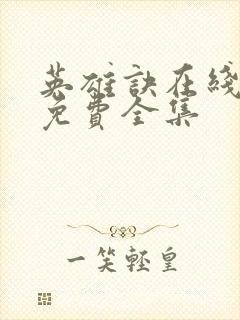 英雄訣在綫
免費全集
一笑輕皇